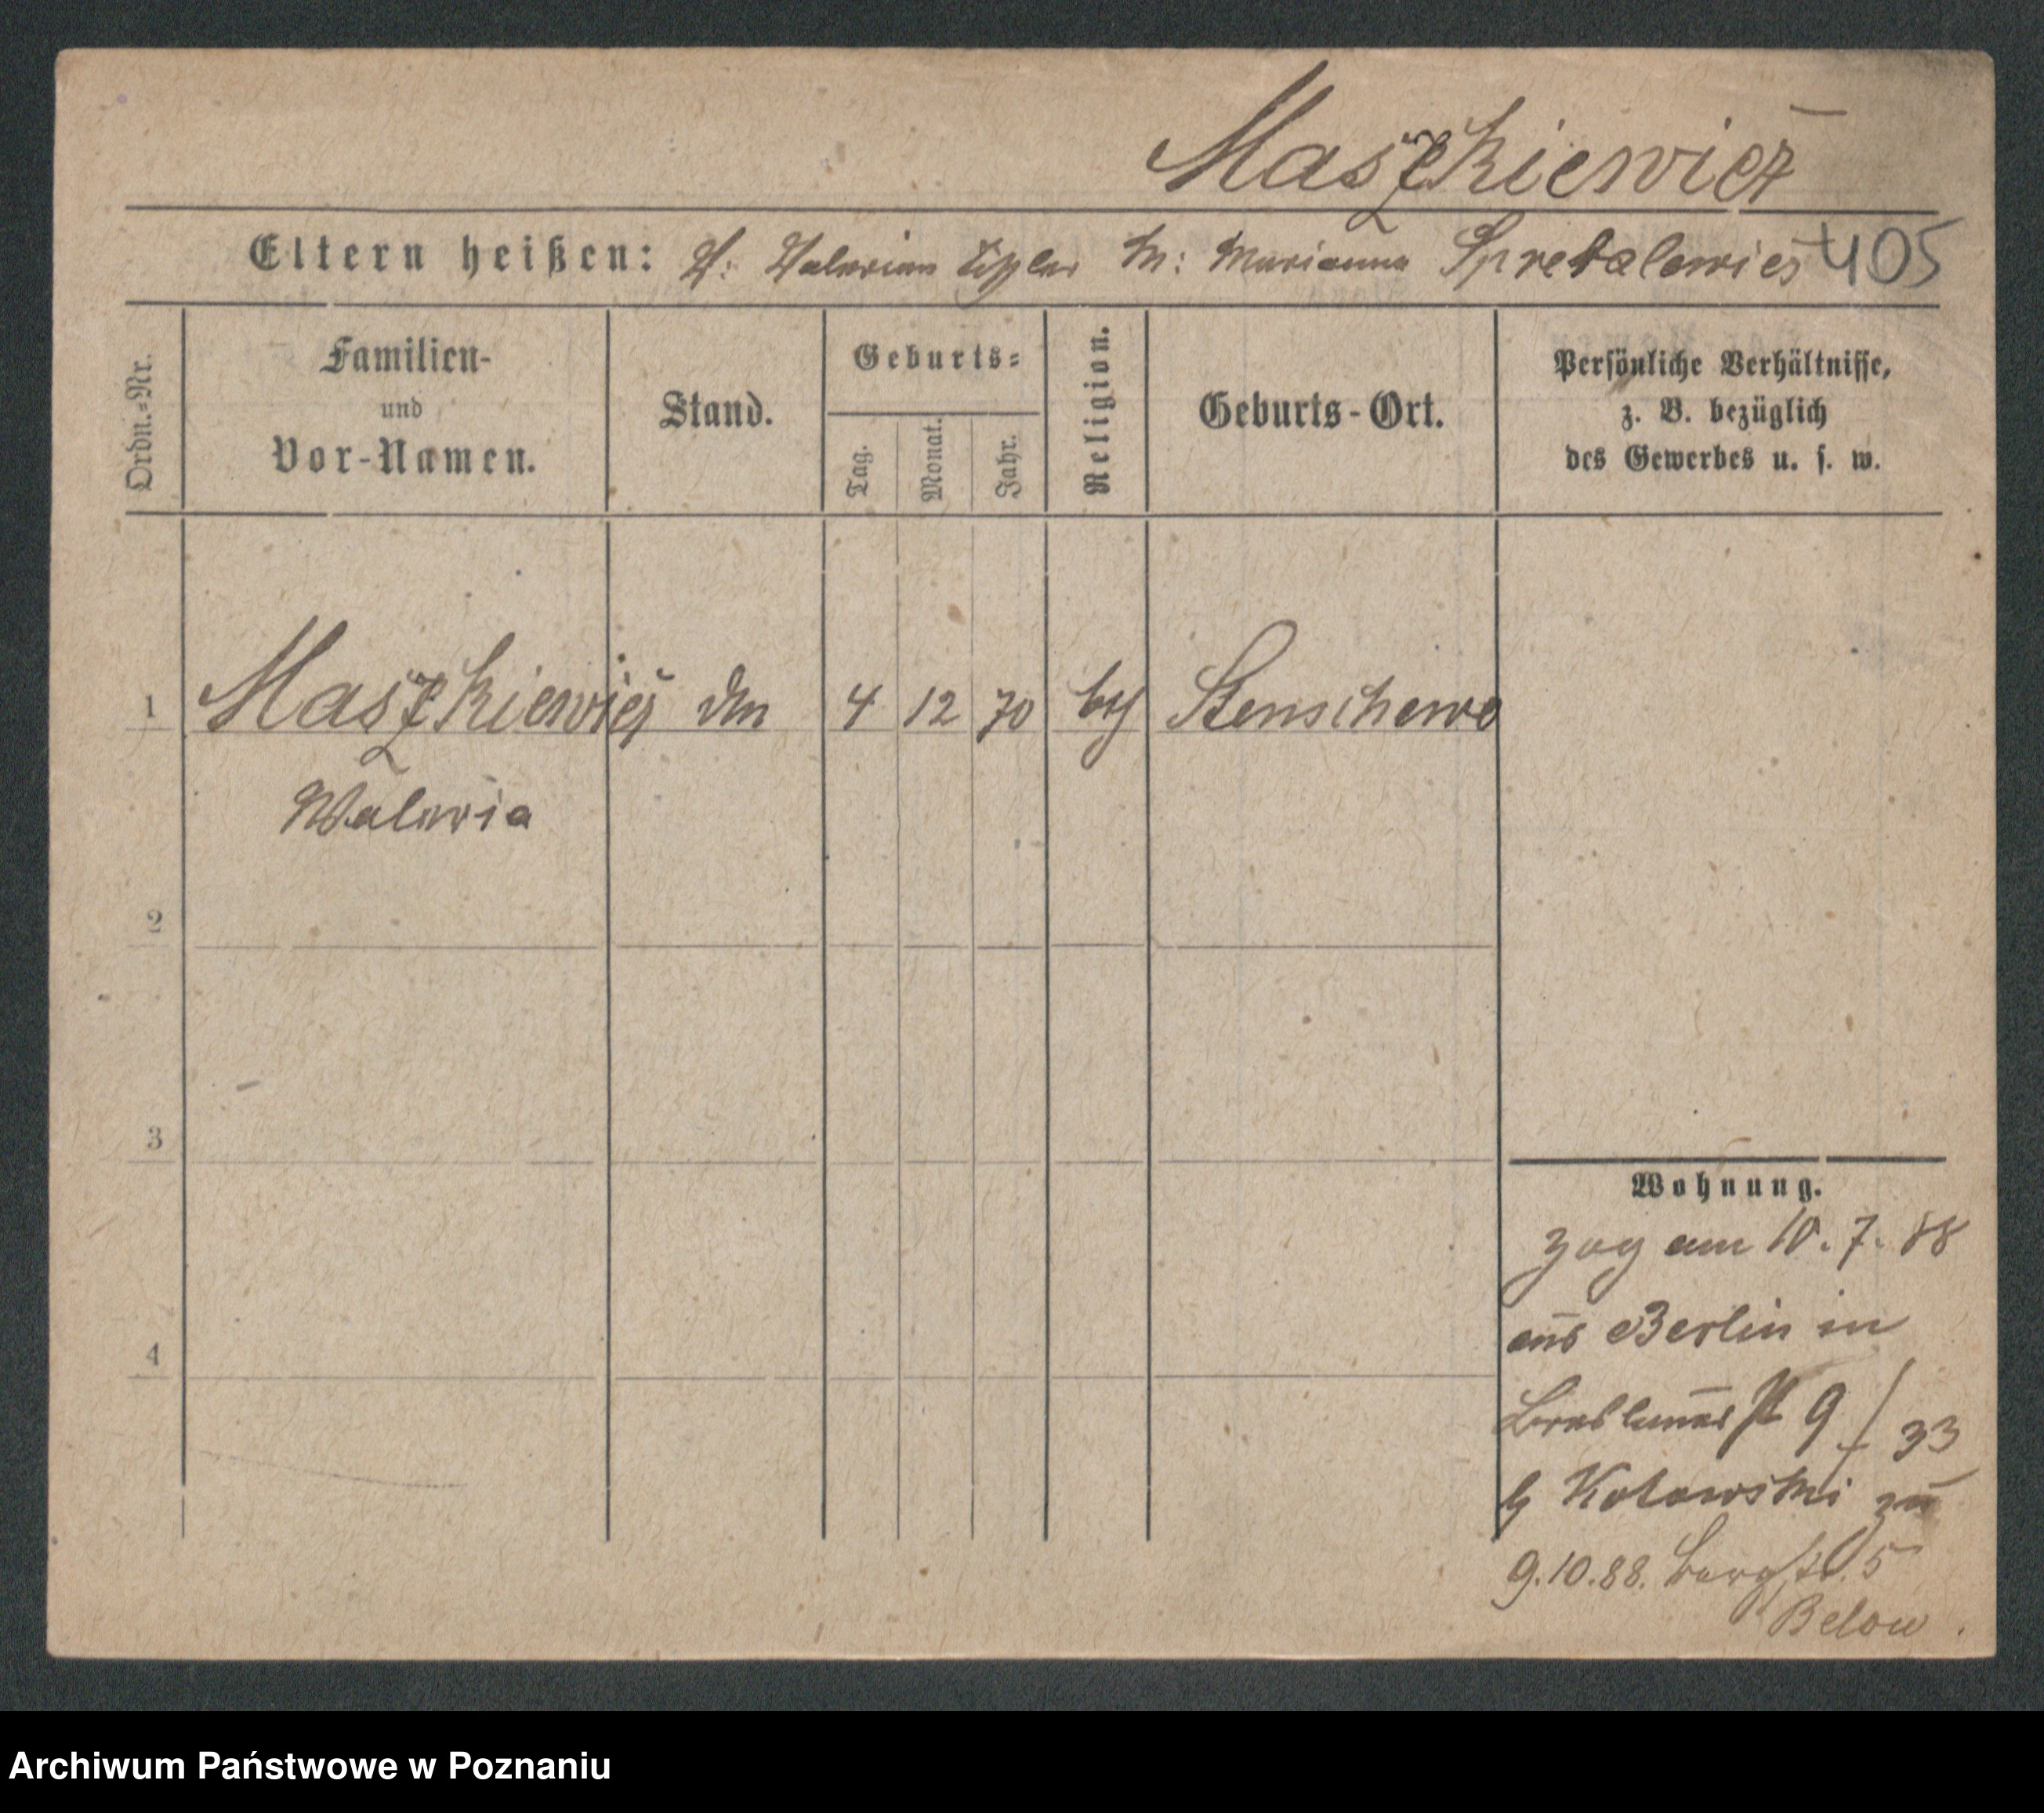 Maszkiewicz
Eltern heißen: V: Valerian M: Marianna 405
Ordn.=Nr.
Familien-
und
Vor-Namen.
Stand.
Geburts=
Tag.
Monat.
Jahr.
Religion.
Geburts-Ort.
Persönliche Verhältnisse,
z. B. bezüglich
des Gewerbes u. s. w.
1 Maszkiewicz 4 12 70 Stenschewo
Waleria
2
3
4
Wohnung.
zog am 10. 7. 88
aus Berlin in
9/33
Kotowski
9.10.88. Bergstr. 5
Below.
Archiwum Państwowe w Poznaniu